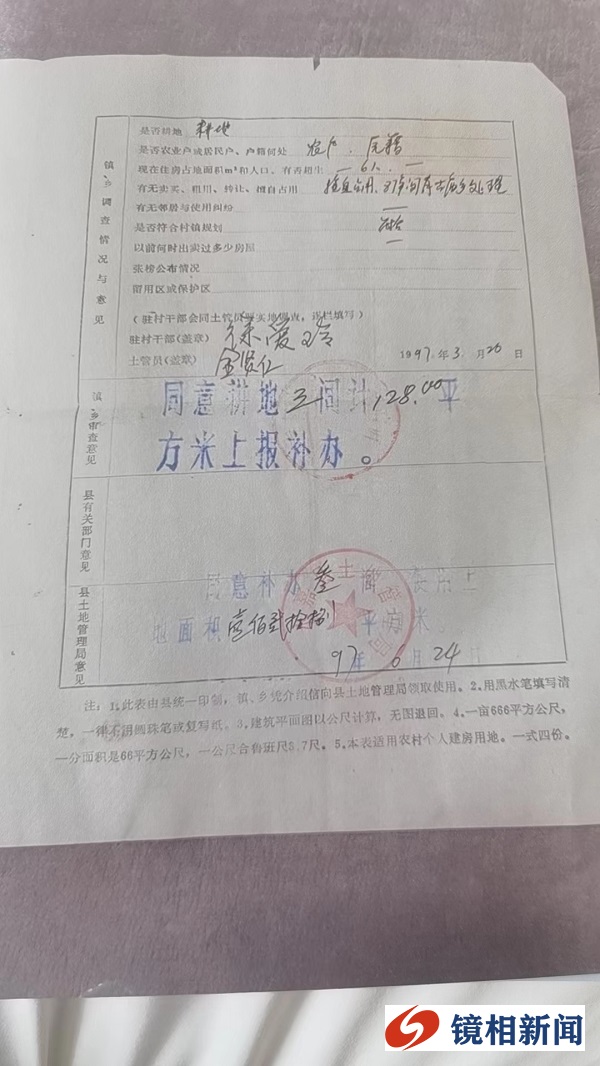 镇、乡调查情况与意见
是否耕地 耕地
是否农业户或居民户、户籍何处 农户、
现在住房占地面积m²和人口、有否超生 — 6人、—
有无卖买、租用、转让、擅自占用 擅自占用、
有无邻居与使用纠纷 —
是否符合村镇规划 符合
以前何时出卖过多少房屋 —
张榜公布情况
留用区或保护区
(驻村干部会同土管员 实地 查,逐栏填写)
驻村干部(盖章) 爱玲
土管员(盖章) 金贤仁 1997.年3.月26日
镇、乡审查意见
同意耕地三间计128.00平
方米上报补办。
县有关部门意见
县土地管理局意见
同意补办叁间
地面积壹佰贰拾捌平方米
97年6月24日
注:1.此表由县统一印制,镇、乡凭介绍信向县土地管理局领取使用。2.用黑水笔填写清
楚,一律不用圆珠笔或复写纸。3.建筑平面图以公尺计算,无图退回。4.一亩666平方公尺,
一分面积是66平方公尺,一公尺合鲁班尺3.7尺。5.本表适用农村个人建房用地。一式四份。
镜相新闻